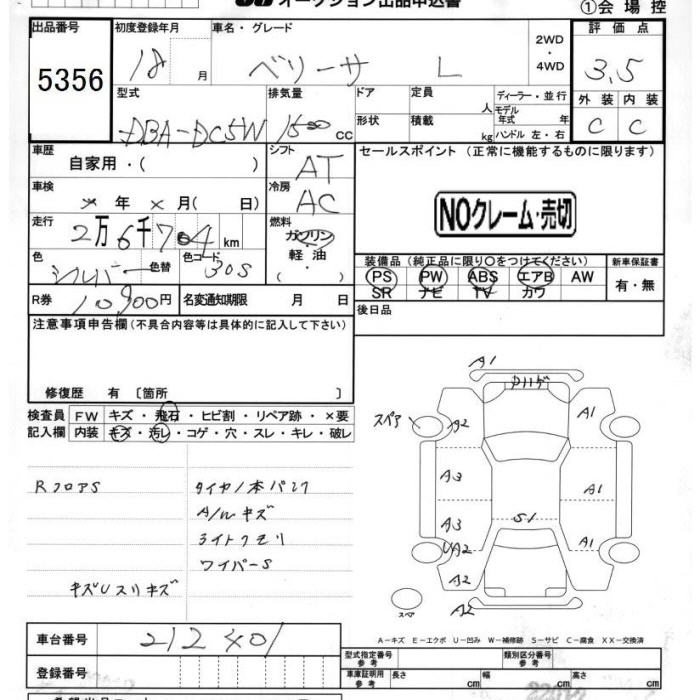 オークション出品申込書 ①会場控
出品番号 初度登録年月 車名・グレード 評価点
5356 18 月 ベリーサ L 2WD・4WD 3.5
型式 排気量 ドア 定員 人 ディーラー・並行 外装 内装
モデル年式 年
DBA-DC5W 1500 CC 形状 積載 kg ハンドル 左・右 C C
車歴 シフト セールスポイント (正常に機能するものに限ります)
自家用・( ) AT
車検 年 × 月( 日) 冷房 AC NOクレーム・売切
走行 2万6千704 km 燃料 ガソリン
軽油
( )
色 シルバー 色替 色コード 30S
装備品(純正品に限り○をつけてください) 新車保証書
PS PW ABS エアB AW 有・無
SR ナビ TV カワ
R券 10,900円 名変通知期限 月 日
後日品
注意事項申告欄(不具合内容等は具体的に記入して下さい)
修復歴 有 〔箇所 〕
検査員 FW キズ・飛石・ヒビ割・リペア跡・×要
記入欄 内装 キズ・汚レ・コゲ・穴・スレ・キレ・破レ
RフロアS タイヤ1本パンク
A/Wキズ
ライトクモリ
ワイパーS
キズUスリキズ
A1
ハガ
スペア A2 A1
A3 A1
A3 S1
UA2 A1
A2
スペア A2
A-キズ E-エクボ U-凹み W-補修跡 S-サビ C-腐食 XX-交換済
車台番号 212401 型式指定番号 参考 類別区分番号 参考
登録番号 車庫証明用 参考 長さ cm 幅 cm 高さ cm